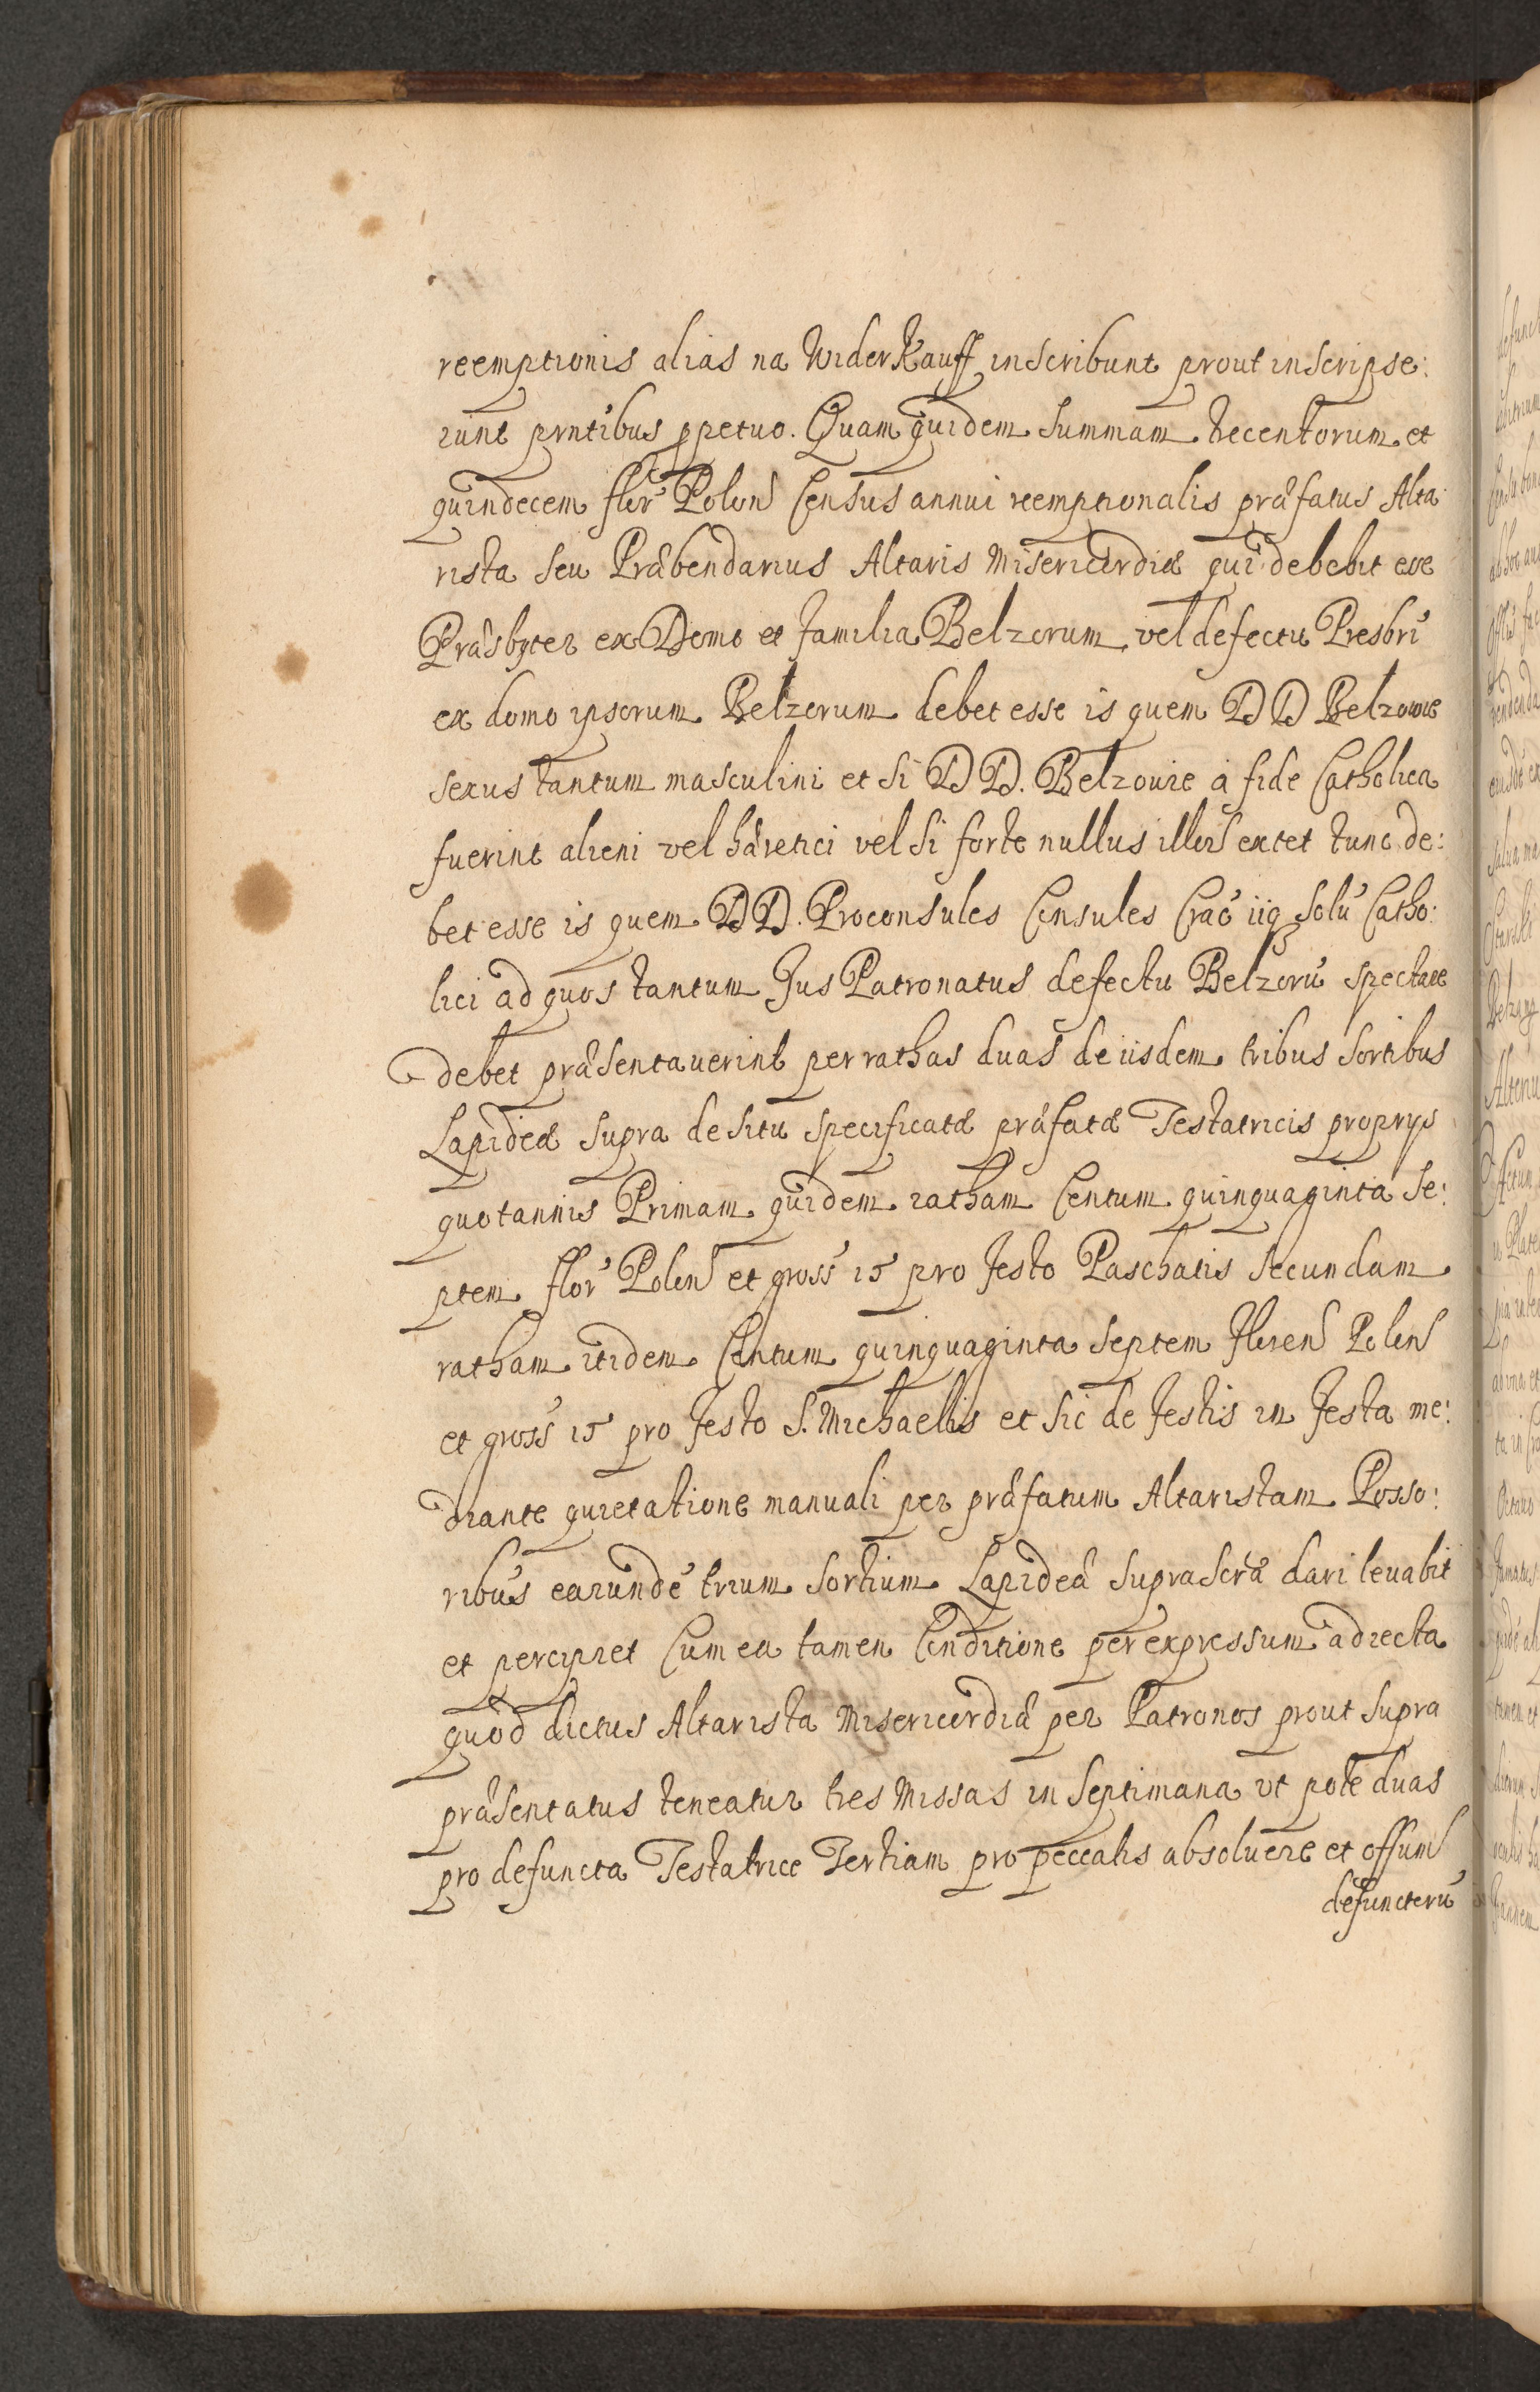 reemptionis alias na Widerkauff inscribunt prout inscripse:
runt prntibus ppetuo. Quam quidem summam trecentorum et
quindecem flor Polon Census annui reemptionalis præfatus Alta
rista seu Præbendarius Altaris Misericordiæ qui debebit ee
Præsbyter ex Domo et familia Belzorum vel defectu Presbri
ex domo ipsorum Belzorum debet esse is quem DD Belzowie
sexus tantum masculini et si DD. Belzowie a fide Catholica
fuerint alieni vel hæretici vel si forte nullus illor extet tunc de:
bet esse is quem DD. Proconsules Consules Crac iiq solu Catho:
lici ad quos tantum Jus Patronatus defectu Belzoru spectare
debet præsentaverint per rathas duas de iisdem tribus sortibus
Lapideæ supra de situ specificatæ præfatæ Testatricis proprys
quotannis Primam quidem ratham Centum quinquaginta se:
ptem flor Polon et gross 15 pro festo Paschatis secundam
ratham itidem Centum quinquaginta septem floren Polon
et gross 15 pro festo S. Michaelis et sic de festis in festa me:
diante quietatione manuali per præfatum Altaristam Posso:
ribus earunde trium sortium Lapideæ suprascræ dari levabit
et percipiet Cum ea tamen Conditione per expressum adiecta
quod dictus Altarista Misericordiæ per Patronos prout supra
præsentatus teneatur tres Missas in septimana ut pote duas
pro defuncta Testatrice Tertiam pro peccatis absolvere et offum
defunctoru